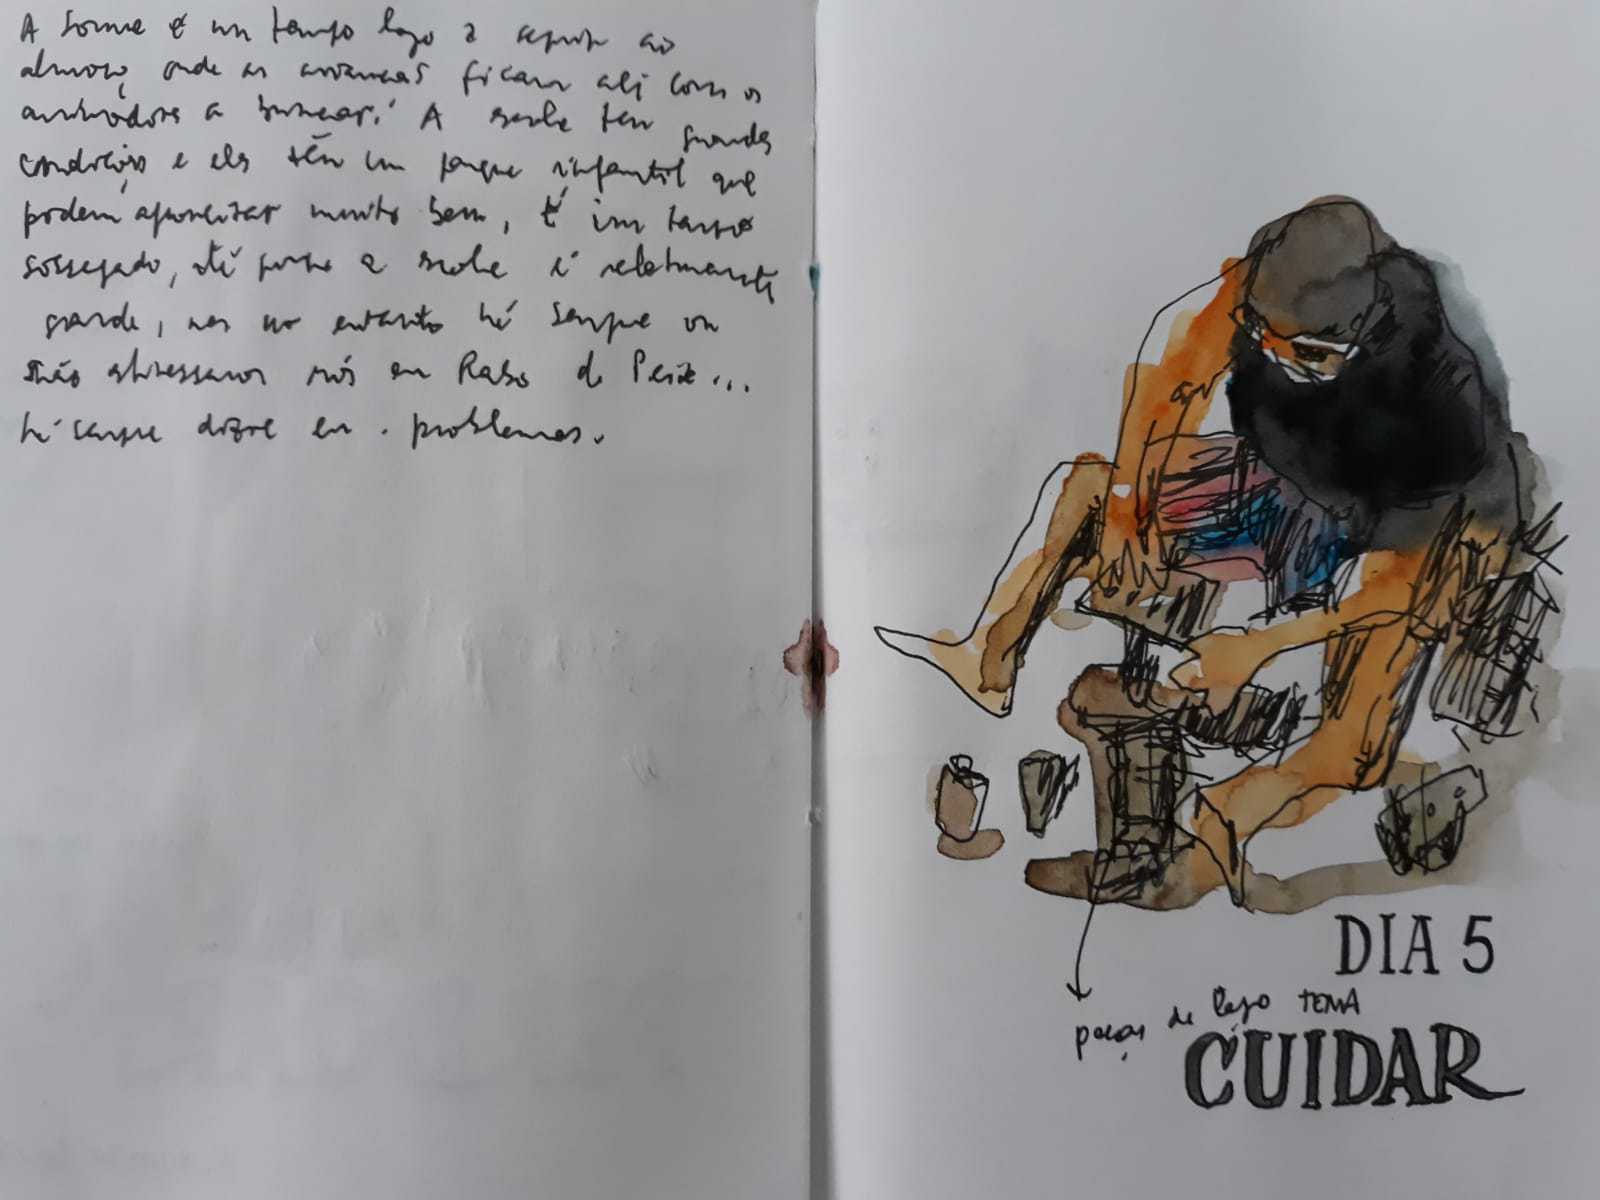 A sorna é um tempo logo a seguir ao
almoço, onde as crianças ficam ali com os
animadores a brincar. A escola tem grandes
condições e eles têm um parque infantil que
podem aproveitar muito bem, É um tempo
sossegado, até porque a escola é relativamente
grande, mas no entanto há sempre um
senão estivessemos nós em Rabo de Peixe...
há sempre dizre em . problemas.
DIA 5
peças de lego TEMA
CUIDAR